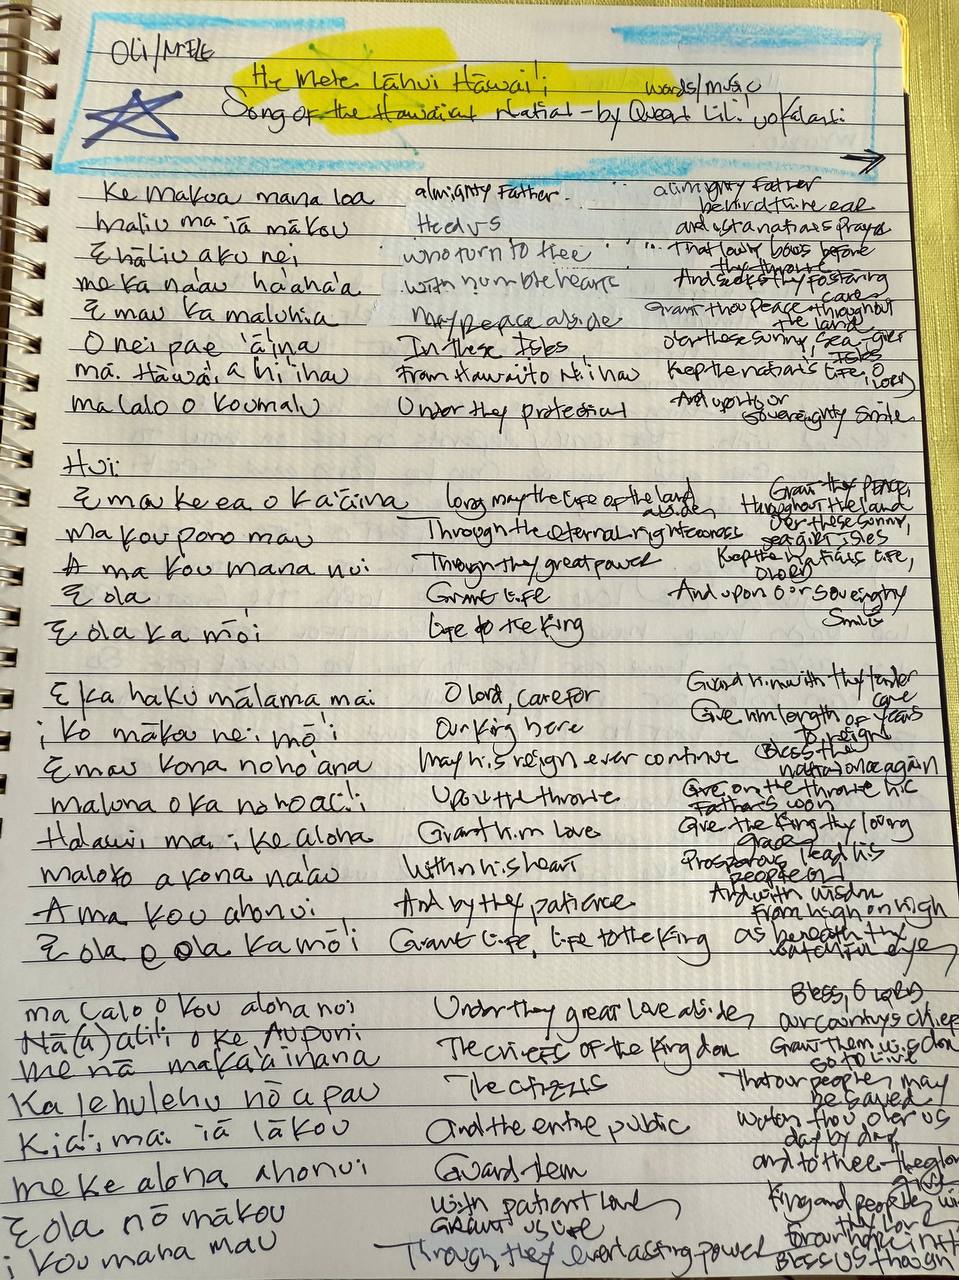 OLI/MELE
He Mele Lāhui Hawai'i
words/music
Song of the Hawaiian Nation - by Queen Lili'uokalani
Ke Makua mana loa almighty Father almighty Father
behind thine ear
maliu mai iā mākou Heed us and a nations prayer
E hāliu aku nei who turn to thee That lowly bows before
thy throne
me ka na'au ha'aha'a with humble hearts And seeks thy fostering
care
E mau ka maluhia May peace abide Grant thou peace throughout
the land
O nei pae 'āina In these Isles O'er these sunny, sea-girt
Isles
mā. Hawai'i ā Ni'ihau From Hawai to Ni'ihau Keep the nation's life, O
LORD
malalo o kou malu Under thy protection And upon our
sovereignty smile
Hui:
E mau ke ea o ka 'āina Long may the life of the land
abide, Grant thy PEACE,
throughout the land
Ma kou pono mau Through the eternal righteousness O'er these sunny,
sea girt isles
A ma kou mana nui Through thy great power Keep the nations life,
O LORD
E ola Grant life And upon our soveingty
E ola ka mō'ī Life to the king Smile
E ka haku mālama mai O lord, care for Guard him with thy tender
care
i ko mākou nei mō'ī Our king here Give him length of years
to reign
E mau kona noho'ana May his reign ever continue Bless the
nation once again
maluna o ka noho ali'i Upon the throne Give on the throne his
Father's won
Hā'awi mai i ke aloha Grant him love Give the King thy loving
grace
maloko a kona na'au Within his heart Prosperous lead his
people on
A ma kou ahonui, And by thy patience And with wisdm
from high on high
E ola e ola ka mō'ī Grant life, life to the King as beneath thy
watchful eye,
ma lalo o kou aloha nui Under thy great love abide, Bless, O LORD
our countys chiefs
Nā (a) ali'i o ke Aupuni The chiefs of the kingdon Grant them wisdon
so to live
me nā maka'āinana The citizens That our people, may
be saved
Ka lehulehu nō a pau And the entire public
Kia'i mai iā lākou Guard them Watch thou over us
day by day,
me ke aloha ahonui with patient love and to thee
E ola nō mākou Grant us life King and people,
i kou mana mau Through thy everlasting power Bless us though